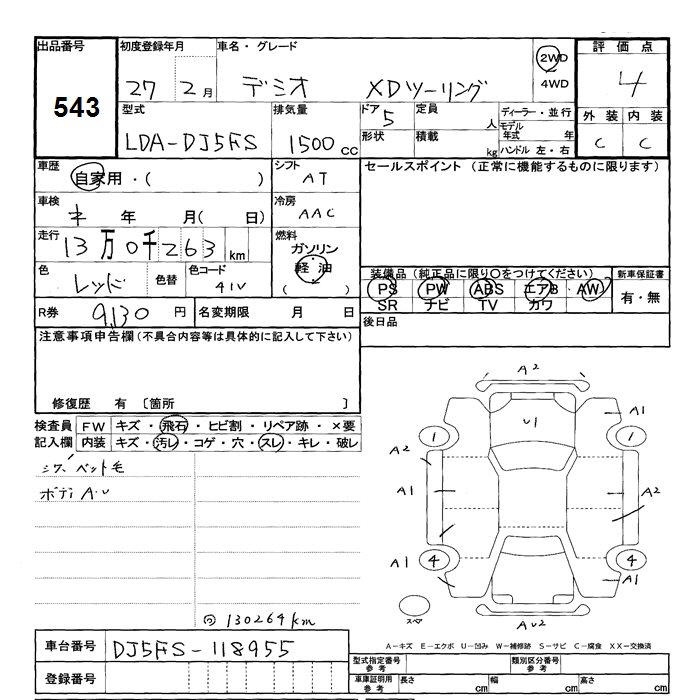 出品番号 初度登録年月 車名・グレード 2WD 評価点
543 27 2月 デミオ XDツーリング 4WD 4
型式 排気量 ドア 定員 ディーラー・並行 外装 内装
LDA-DJ5FS 1500cc 5 人 モデル年式 年 C C
形状 積載 kg ハンドル 左・右
車歴 シフト セールスポイント (正常に機能するものに限ります)
自家用・( ) AT
車検 冷房
年 月( 日) AAC
走行 燃料
13万0千263km ガソリン
軽油
( )
色 色替 色コード 装備品(純正品に限り○をつけてください) 新車保証書
レッド 41V PS PW ABS エアB AW 有・無
SR ナビ TV カワ
R券 9,130円 名変期限 月 日 後日品
注意事項申告欄(不具合内容等は具体的に記入して下さい)
修復歴 有 〔箇所 〕
検査員 FW キズ・飛石・ヒビ割・リペア跡・×要
記入欄 内装 キズ・汚レ・コゲ・穴・スレ・キレ・破レ
シワ ペット毛
ボディ A・U
A2
U1
A1
1 1
A2
A1 A2
A1 4 4
A1
スペア
AU2
130264km
A−キズ E−エクボ U−凹み W−補修跡 S−サビ C−腐食 XX−交換済
車台番号 DJ5FS-118955
登録番号
型式指定番号 参考 類別区分番号 参考
車庫証明用 参考 長さ cm 幅 cm 高さ cm